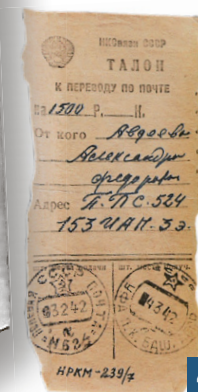 НКСвязи СССР
ТАЛОН
К ПЕРЕВОДУ ПО ПОЧТЕ
на 1500 Р. К.
От кого Авдеева
Александра
Федоров
Адрес П.ПС. 524
153 ИАП. 3э.
СССР
ПОЧТА
3242
№524
УФА
4342
БАШ.
НРКМ-239/7